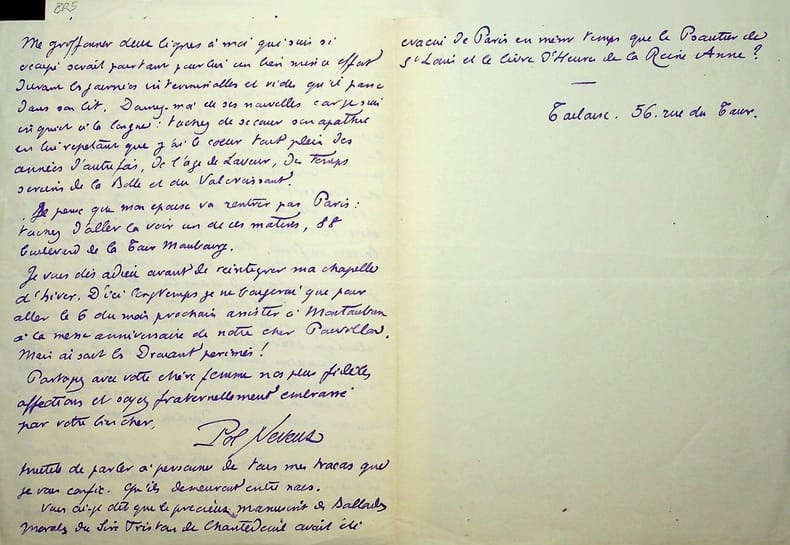 8R5
Me griffonner deux lignes à moi qui suis si
occupé serait pourtant pour lui un bien mince effort
durant les journées interminables et vides qu'il passe
dans son lit. Donnez-moi de ses nouvelles car je suis
inquiet à la longue : tachez de secouer son apathie
en lui repetant que j'ai le coeur tout plein des
années d'autrefois, de l'age de Lavour, des temps
sereins de la Bolle et du Valcroissant.
Je pense que mon epouse va rentrer par Paris :
tachez d'aller la voir un de ces matins, 88
boulevard de la Tour Maubourg.
Je vous dis adieu avant de reintegrer ma chapelle
d'hiver. D'ici longtemps je ne bougerai que pour
aller le 6 du mois prochain assister à Montauban
à la messe anniversaire de notre cher Pouvillon.
Mais où sont les Drouant perimés !
Partagez avec votre chère femme nos plus fidèles
affections et soyez fraternellement embrassé
par votre bien cher,
Pol Neveux
Inutile de parler à personne de tous mes tracas que
je vous confie. Qu'ils demeurent entre nous.
Vous ai-je dit que le precieux manuscrit des Ballades
morales du Sire Tristan de Chantedeuil avait été
evacué de Paris en même temps que le Psautier de
St Louis et le livre d'Heure de la Reine Anne ?
Toulouse. 56. rue du Taur.